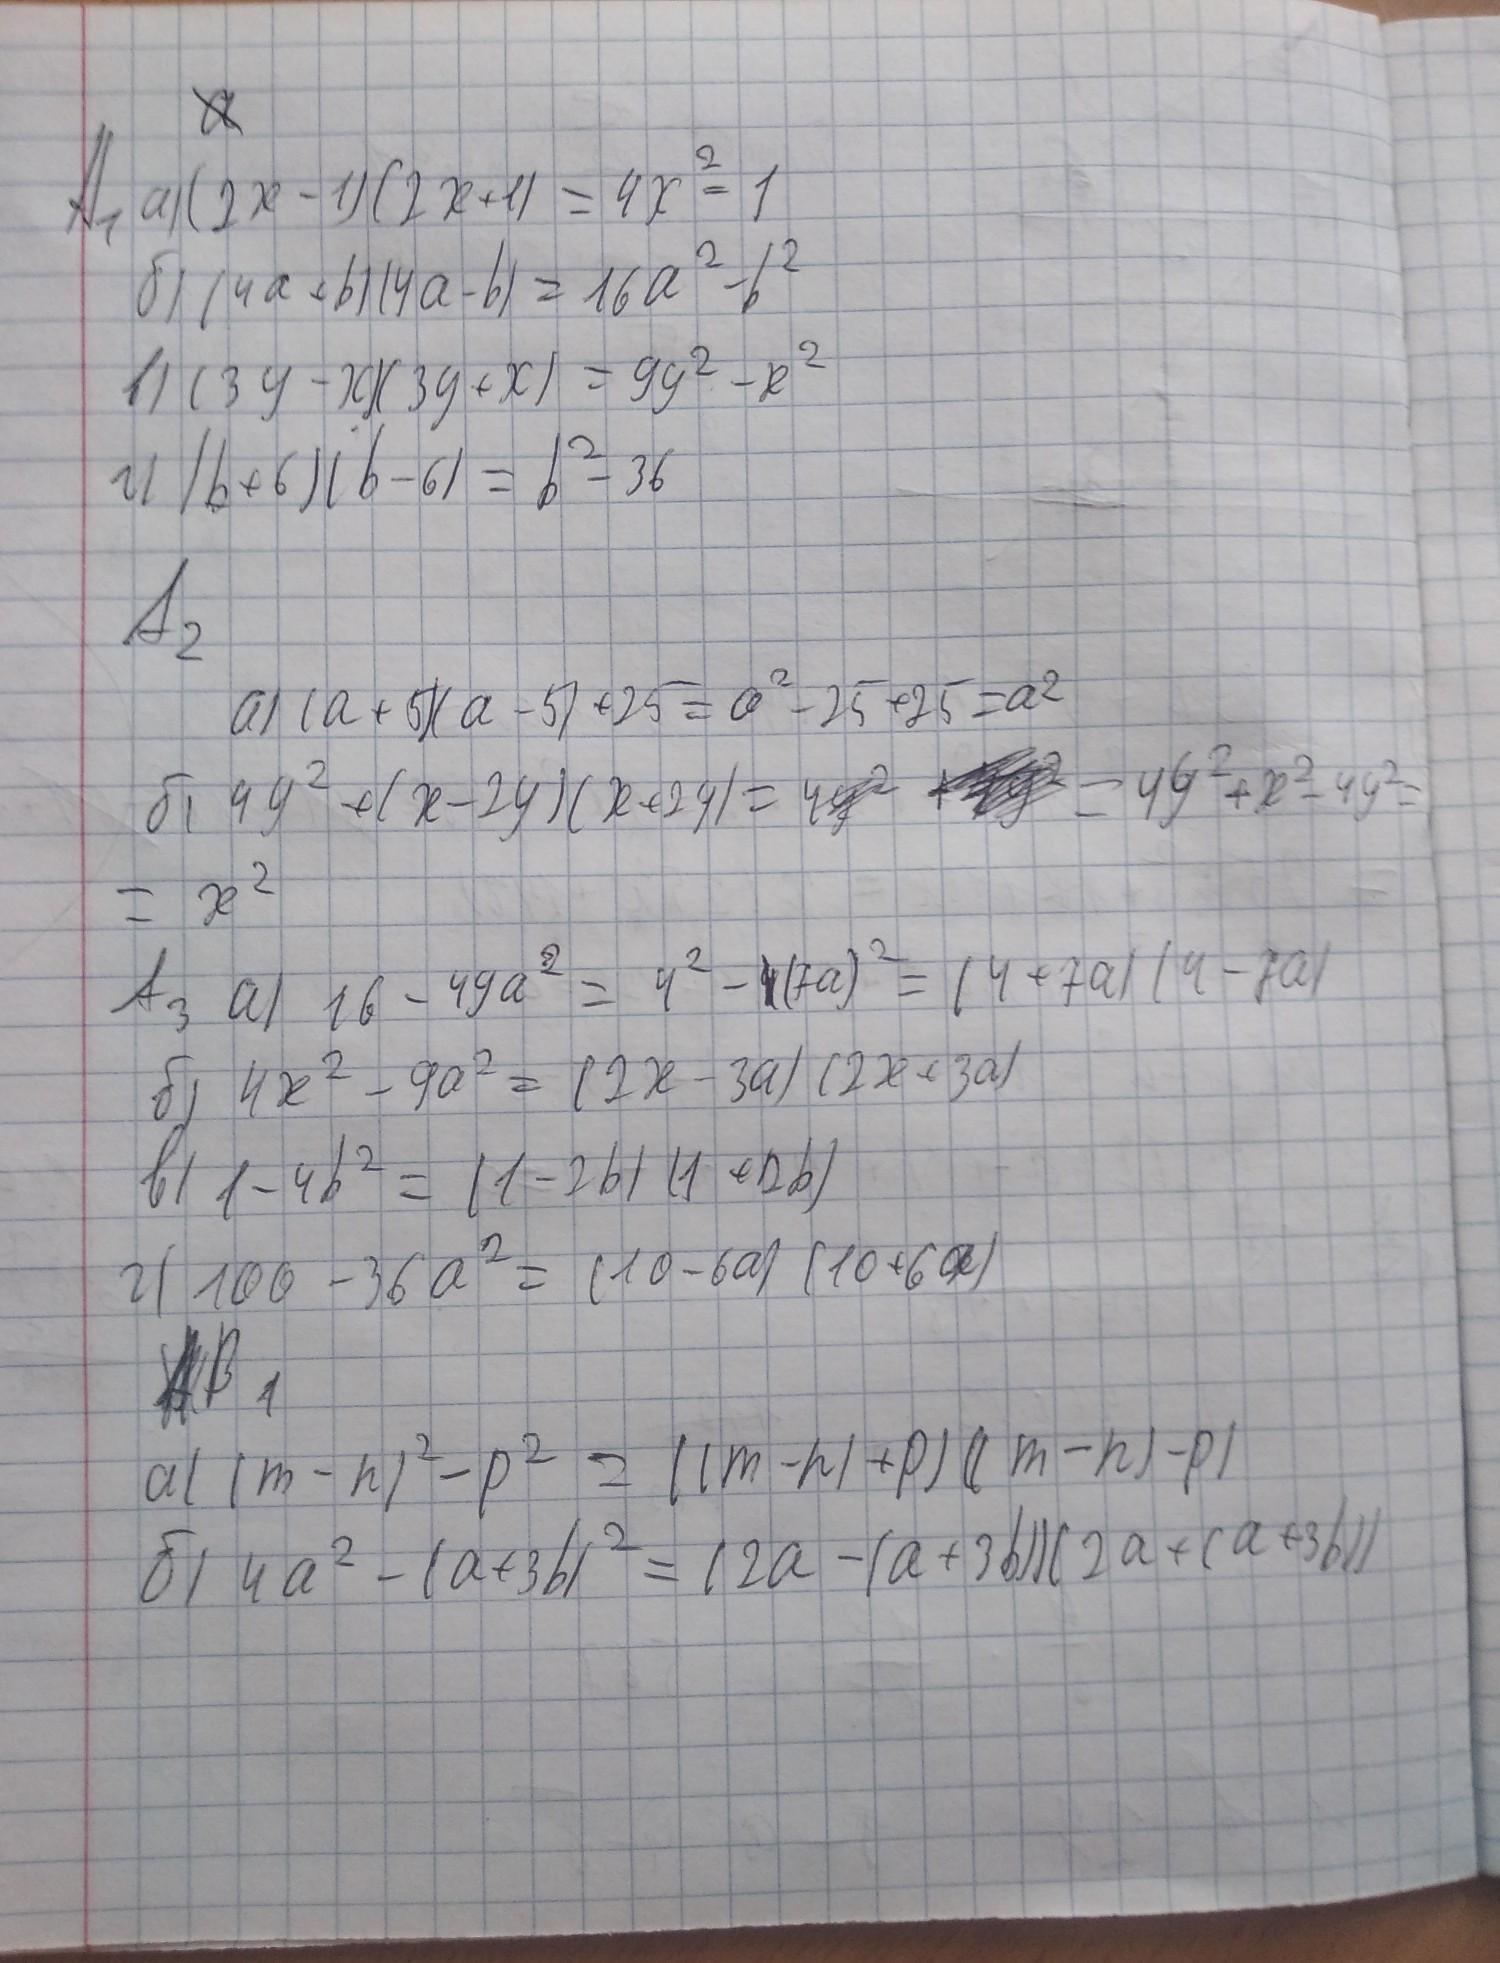 А₁ а) (2x-1)(2x+1) = 4x² - 1
б) (4a+b)(4a-b) = 16a² - b²
в) (3y-x)(3y+x) = 9y² - x²
г) (b+6)(b-6) = b² - 36
А₂
а) (a+5)(a-5)+25 = a² - 25 + 25 = a²
б) 4y² + (x-2y)(x+2y) = 4y² = 4y² + x² - 4y² =
= x²
А₃ а) 16 - 49a² = 4² - (7a)² = (4+7a)(4-7a)
б) 4x² - 9a² = (2x-3a)(2x+3a)
в) 1 - 4b² = (1-2b)(1+2b)
г) 100 - 36a² = (10-6a)(10+6a)
В 1
а) (m-n)² - p² = ((m-n)+p)((m-n)-p)
б) 4a² - (a+3b)² = (2a-(a+3b))(2a+(a+3b))